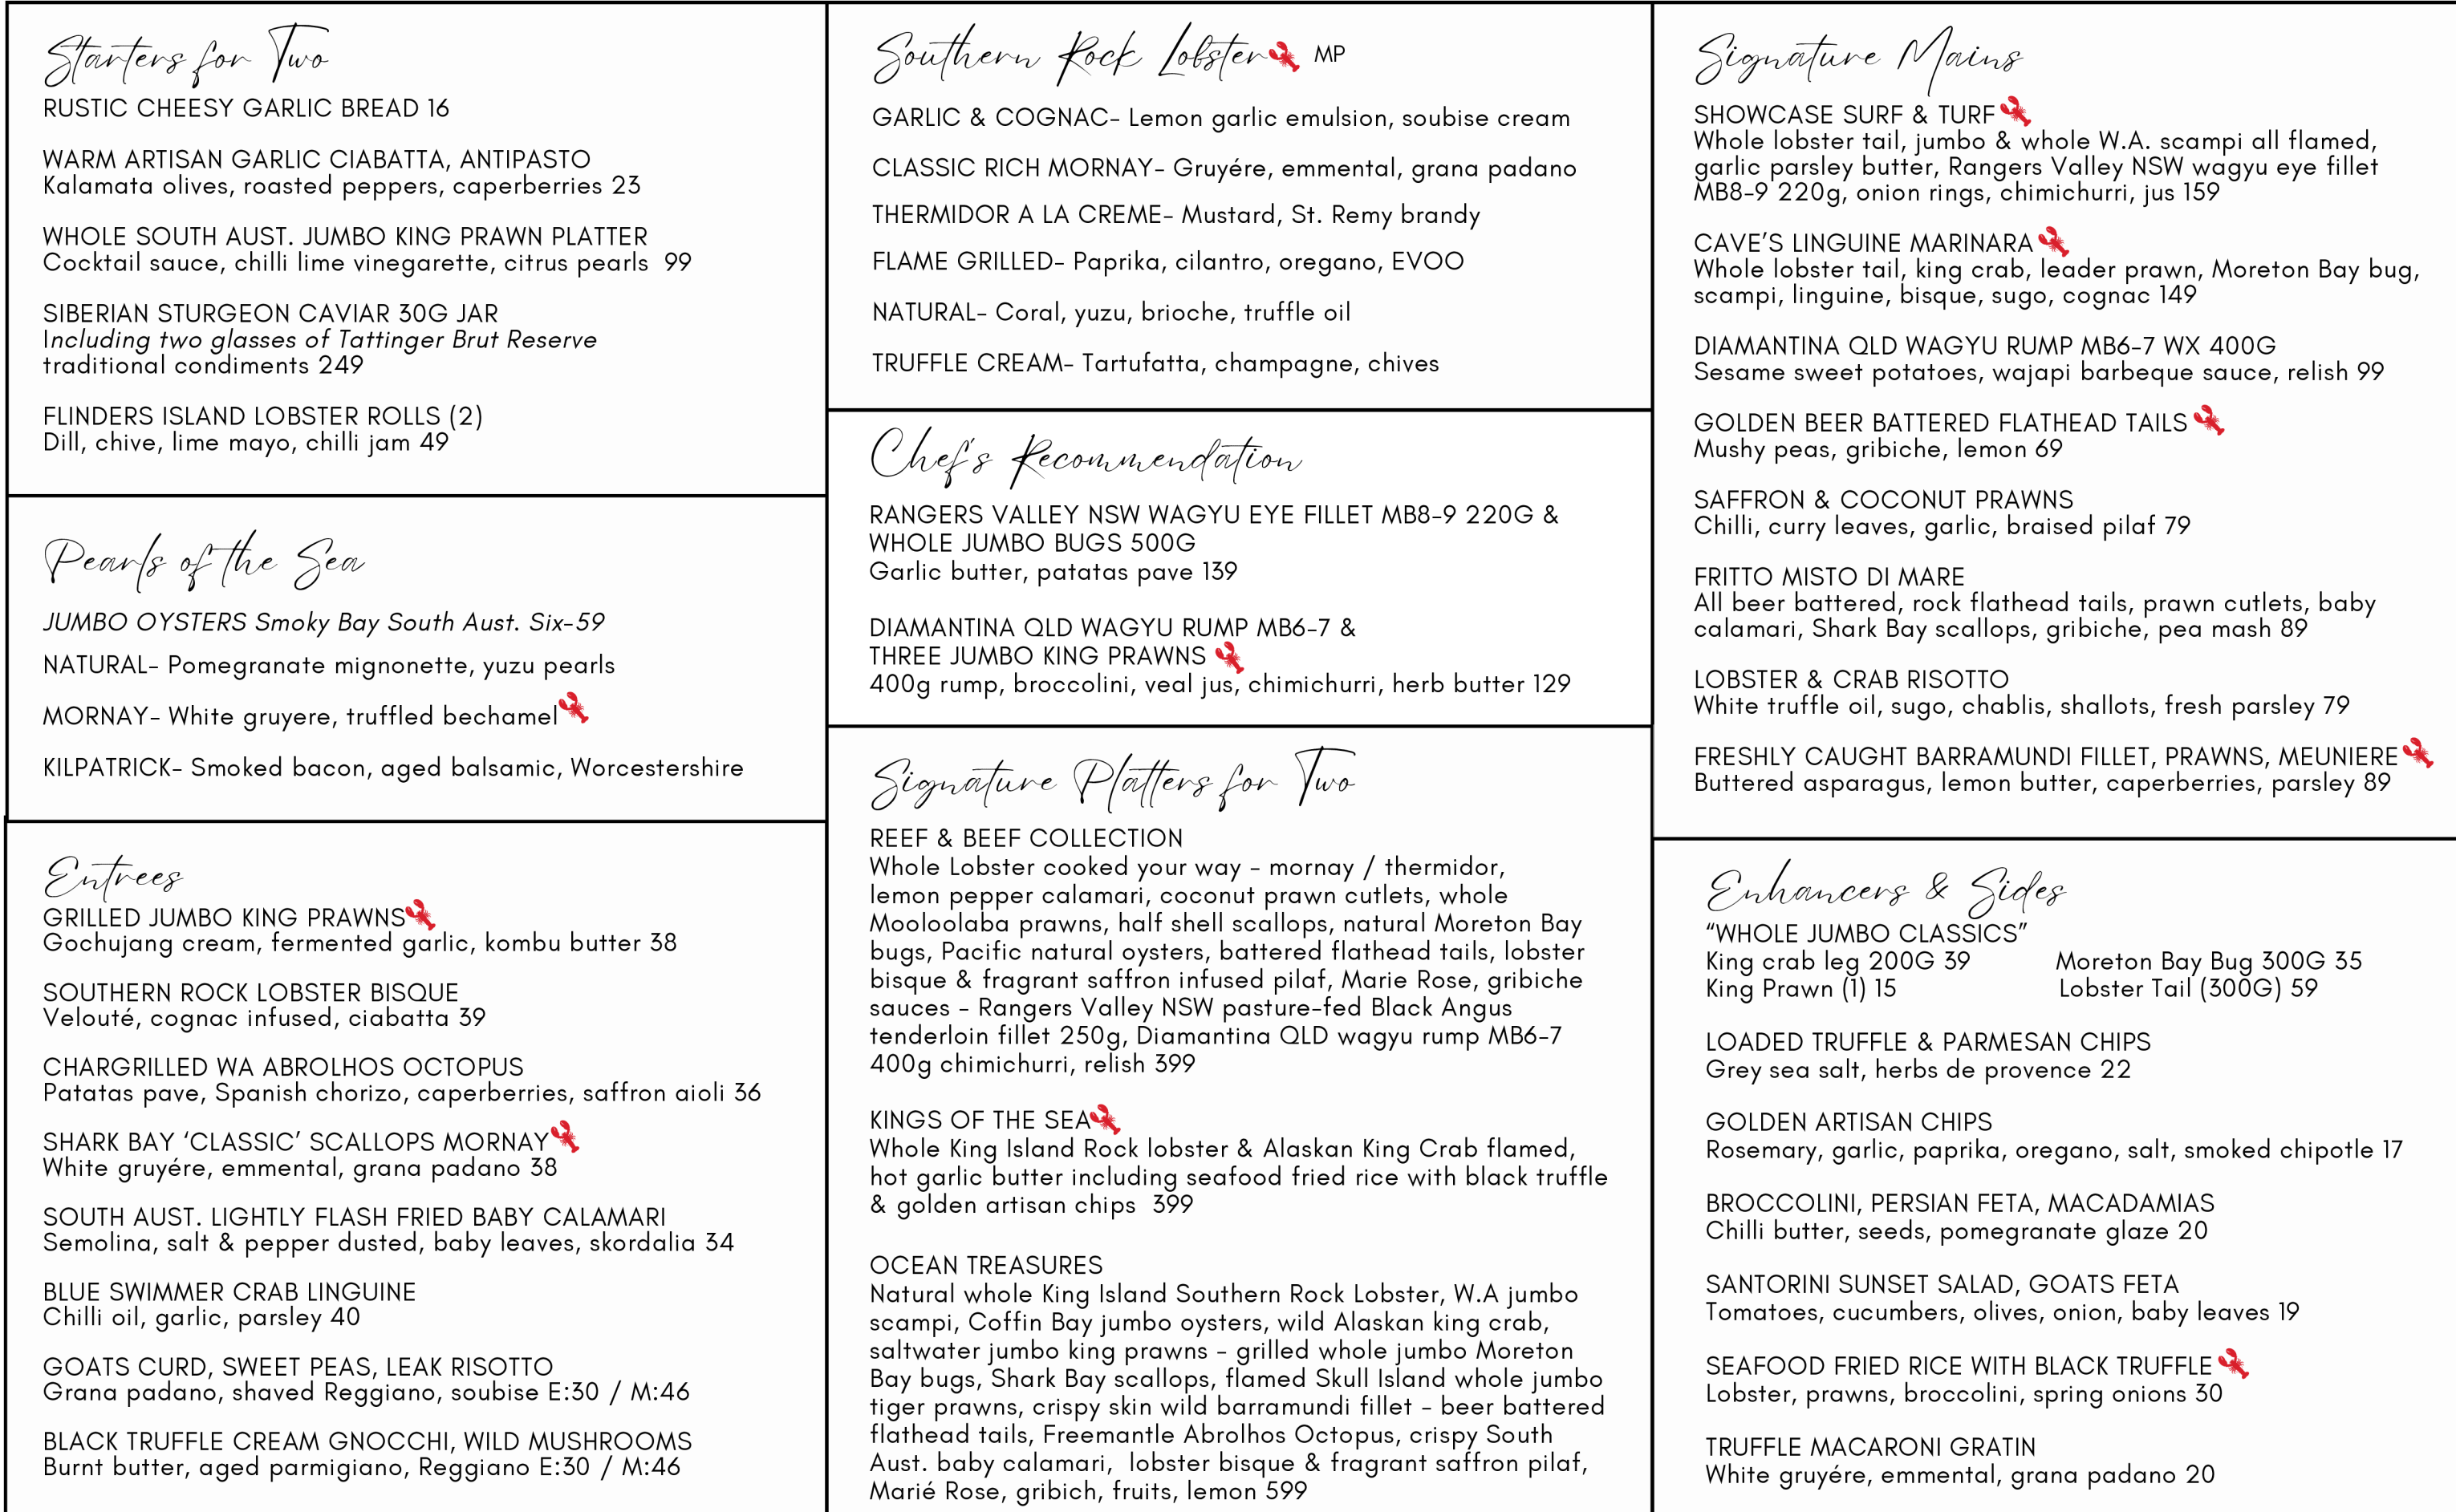 Starters for Two
RUSTIC CHEESY GARLIC BREAD 16
WARM ARTISAN GARLIC CIABATTA, ANTIPASTO
Kalamata olives, roasted peppers, caperberries 23
WHOLE SOUTH AUST. JUMBO KING PRAWN PLATTER
Cocktail sauce, chilli lime vinegarette, citrus pearls 99
SIBERIAN STURGEON CAVIAR 30G JAR
Including two glasses of Tattinger Brut Reserve
traditional condiments 249
FLINDERS ISLAND LOBSTER ROLLS (2)
Dill, chive, lime mayo, chilli jam 49
Pearls of the Sea
JUMBO OYSTERS Smoky Bay South Aust. Six-59
NATURAL- Pomegranate mignonette, yuzu pearls
MORNAY- White gruyere, truffled bechamel
KILPATRICK- Smoked bacon, aged balsamic, Worcestershire
Entrees
GRILLED JUMBO KING PRAWNS
Gochujang cream, fermented garlic, kombu butter 38
SOUTHERN ROCK LOBSTER BISQUE
Velouté, cognac infused, ciabatta 39
CHARGRILLED WA ABROLHOS OCTOPUS
Patatas pave, Spanish chorizo, caperberries, saffron aioli 36
SHARK BAY ‘CLASSIC’ SCALLOPS MORNAY
White gruyére, emmental, grana padano 38
SOUTH AUST. LIGHTLY FLASH FRIED BABY CALAMARI
Semolina, salt & pepper dusted, baby leaves, skordalia 34
BLUE SWIMMER CRAB LINGUINE
Chilli oil, garlic, parsley 40
GOATS CURD, SWEET PEAS, LEAK RISOTTO
Grana padano, shaved Reggiano, soubise E:30 / M:46
BLACK TRUFFLE CREAM GNOCCHI, WILD MUSHROOMS
Burnt butter, aged parmigiano, Reggiano E:30 / M:46
Southern Rock Lobster MP
GARLIC & COGNAC- Lemon garlic emulsion, soubise cream
CLASSIC RICH MORNAY- Gruyére, emmental, grana padano
THERMIDOR A LA CREME- Mustard, St. Remy brandy
FLAME GRILLED- Paprika, cilantro, oregano, EVOO
NATURAL- Coral, yuzu, brioche, truffle oil
TRUFFLE CREAM- Tartufatta, champagne, chives
Chef's Recommendation
RANGERS VALLEY NSW WAGYU EYE FILLET MB8-9 220G &
WHOLE JUMBO BUGS 500G
Garlic butter, patatas pave 139
DIAMANTINA QLD WAGYU RUMP MB6-7 &
THREE JUMBO KING PRAWNS
400g rump, broccolini, veal jus, chimichurri, herb butter 129
Signature Platters for Two
REEF & BEEF COLLECTION
Whole Lobster cooked your way - mornay / thermidor,
lemon pepper calamari, coconut prawn cutlets, whole
Mooloolaba prawns, half shell scallops, natural Moreton Bay
bugs, Pacific natural oysters, battered flathead tails, lobster
bisque & fragrant saffron infused pilaf, Marie Rose, gribiche
sauces - Rangers Valley NSW pasture-fed Black Angus
tenderloin fillet 250g, Diamantina QLD wagyu rump MB6-7
400g chimichurri, relish 399
KINGS OF THE SEA
Whole King Island Rock lobster & Alaskan King Crab flamed,
hot garlic butter including seafood fried rice with black truffle
& golden artisan chips 399
OCEAN TREASURES
Natural whole King Island Southern Rock Lobster, W.A jumbo
scampi, Coffin Bay jumbo oysters, wild Alaskan king crab,
saltwater jumbo king prawns - grilled whole jumbo Moreton
Bay bugs, Shark Bay scallops, flamed Skull Island whole jumbo
tiger prawns, crispy skin wild barramundi fillet - beer battered
flathead tails, Freemantle Abrolhos Octopus, crispy South
Aust. baby calamari, lobster bisque & fragrant saffron pilaf,
Marié Rose, gribich, fruits, lemon 599
Signature Mains
SHOWCASE SURF & TURF
Whole lobster tail, jumbo & whole W.A. scampi all flamed,
garlic parsley butter, Rangers Valley NSW wagyu eye fillet
MB8-9 220g, onion rings, chimichurri, jus 159
CAVE’S LINGUINE MARINARA
Whole lobster tail, king crab, leader prawn, Moreton Bay bug,
scampi, linguine, bisque, sugo, cognac 149
DIAMANTINA QLD WAGYU RUMP MB6-7 WX 400G
Sesame sweet potatoes, wajapi barbeque sauce, relish 99
GOLDEN BEER BATTERED FLATHEAD TAILS
Mushy peas, gribiche, lemon 69
SAFFRON & COCONUT PRAWNS
Chilli, curry leaves, garlic, braised pilaf 79
FRITTO MISTO DI MARE
All beer battered, rock flathead tails, prawn cutlets, baby
calamari, Shark Bay scallops, gribiche, pea mash 89
LOBSTER & CRAB RISOTTO
White truffle oil, sugo, chablis, shallots, fresh parsley 79
FRESHLY CAUGHT BARRAMUNDI FILLET, PRAWNS, MEUNIERE
Buttered asparagus, lemon butter, caperberries, parsley 89
Enhancers & Sides
“WHOLE JUMBO CLASSICS”
King crab leg 200G 39 Moreton Bay Bug 300G 35
King Prawn (1) 15 Lobster Tail (300G) 59
LOADED TRUFFLE & PARMESAN CHIPS
Grey sea salt, herbs de provence 22
GOLDEN ARTISAN CHIPS
Rosemary, garlic, paprika, oregano, salt, smoked chipotle 17
BROCCOLINI, PERSIAN FETA, MACADAMIAS
Chilli butter, seeds, pomegranate glaze 20
SANTORINI SUNSET SALAD, GOATS FETA
Tomatoes, cucumbers, olives, onion, baby leaves 19
SEAFOOD FRIED RICE WITH BLACK TRUFFLE
Lobster, prawns, broccolini, spring onions 30
TRUFFLE MACARONI GRATIN
White gruyére, emmental, grana padano 20